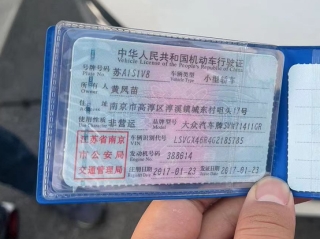 中华人民共和国机动车行驶证
Vehicle License of the People's Republic of China
号牌号码 苏A1S1V8 车辆类型 小型轿车
Plate No. Vehicle Type
所有人 黄风苗
住址 南京市高淳区淳溪镇城东村咀头
使用性质 非营运 品牌型号 大众汽车牌
江苏省南京市公安局交通管理局
车辆识别代号
VIN
发动机号码 388614
Engine No.
注册日期 2017-01-23 发证日期 2017-01-23